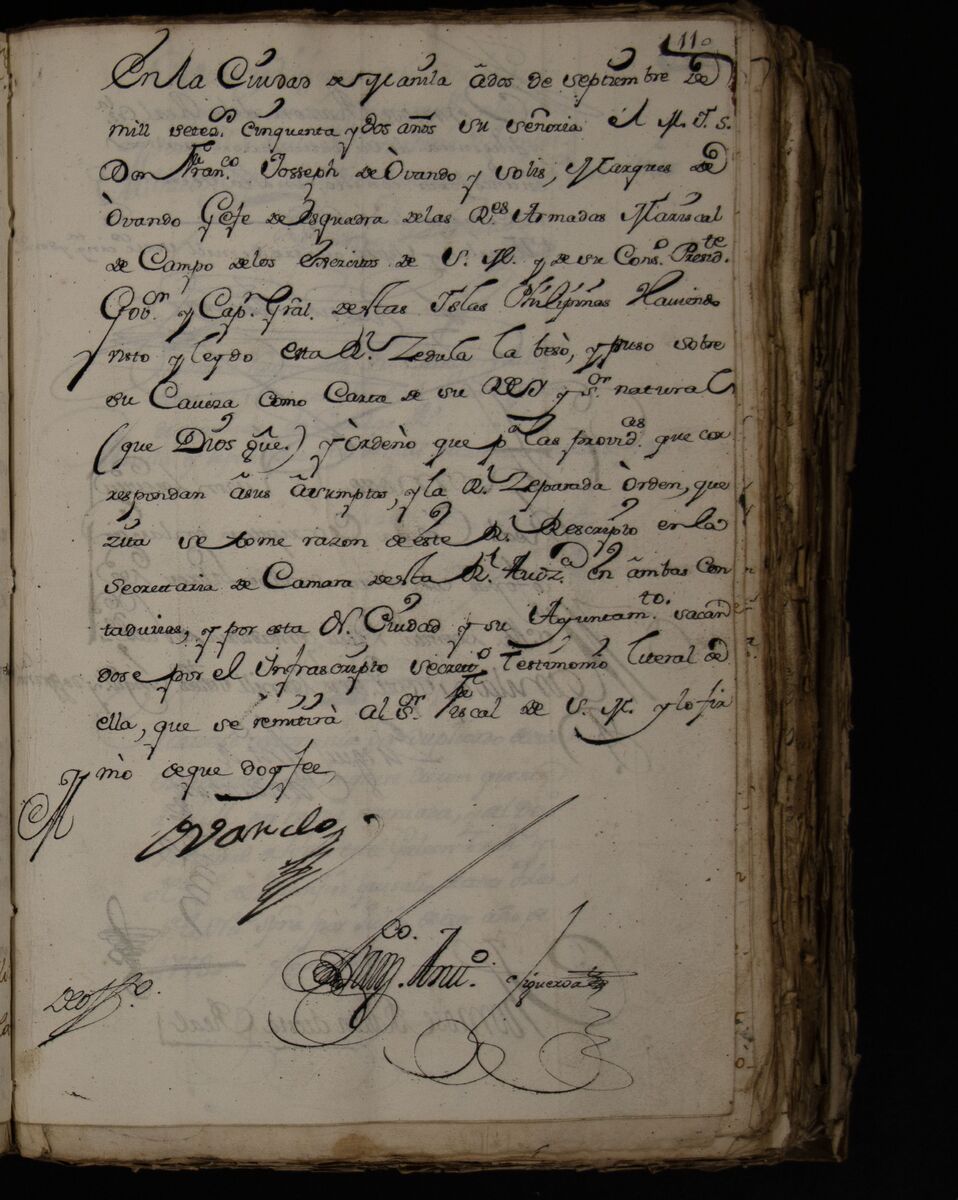 110
En la Ciudad de Manila à dos de Septiembre de
mill setez.s Cinquenta y dos años su señoria el M. I. S.
Don Fran.co Josseph de Ovando y solis, Marques de
Òvando Gefe de Esquadra de las R.es Armadas Mariscal
de Campo de los Exercitos de S. M. y de su Cons.o Presid.te
Gov.or y Cap.n Gral. destas Islas Philipinas Haviendo
visto y leydo esta R.l Zedula la besò, y puso sobre
su Caveza como Carta de su REY y S.or natural
(que Dios gûe.) y òrdeno que p.a las provid.as que cor
respondan à sus àsumptos, y la R.l Zeparada Òrden, que
zita se tome razon de este R.l Rescripto en la
Secrettaria de Camara desta R.l Audz.a en ambas Con
tadurias, y por esta N. Ciudad y su Ayuntam.to. sacan
dose por el Ynfrascripto Secrett.o Testimonio literal de
ella, que se remitirà al S.or Fiscal de S. M. y lo fir
mò de que doy fee,
Ovando
Fran.co Ant.o Figueroa
de off.o